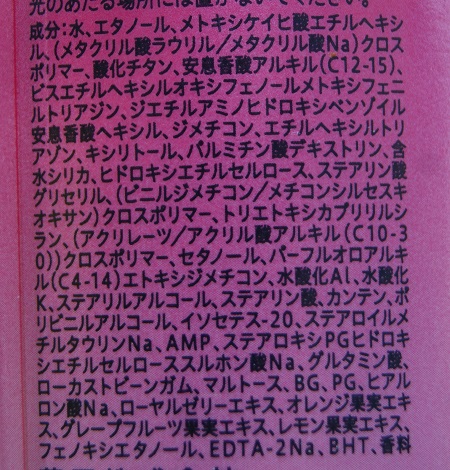 光のあたる場所には置かないでください。
成分:水、エタノール、メトキシケイヒ酸エチルヘキシ
ル、(メタクリル酸ラウリル/メタクリル酸Na)クロス
ポリマー、酸化チタン、安息香酸アルキル(C12-15)、
ビスエチルヘキシルオキシフェノールメトキシフェニ
ルトリアジン、ジエチルアミノヒドロキシベンゾイル
安息香酸ヘキシル、ジメチコン、エチルヘキシルトリ
アゾン、キシリトール、パルミチン酸デキストリン、含
水シリカ、ヒドロキシエチルセルロース、ステアリン酸
グリセリル、(ビニルジメチコン/メチコンシルセスキ
オキサン)クロスポリマー、トリエトキシカプリリルシ
ラン、(アクリレーツ/アクリル酸アルキル(C10-3
0))クロスポリマー、セタノール、パーフルオロアルキ
ル(C4-14)エトキシジメチコン、水酸化Al、水酸化
K、ステアリルアルコール、ステアリン酸、カンテン、ポ
リビニルアルコール、イソセテス-20、ステアロイルメ
チルタウリンNa、AMP、ステアロキシPGヒドロキ
シエチルセルローススルホン酸Na、グルタミン酸、
ローカストビーンガム、マルトース、BG、PG、ヒアル
ロン酸Na、ローヤルゼリーエキス、オレンジ果実エキ
ス、グレープフルーツ果実エキス、レモン果実エキス、
フェノキシエタノール、EDTA-2Na、BHT、香料